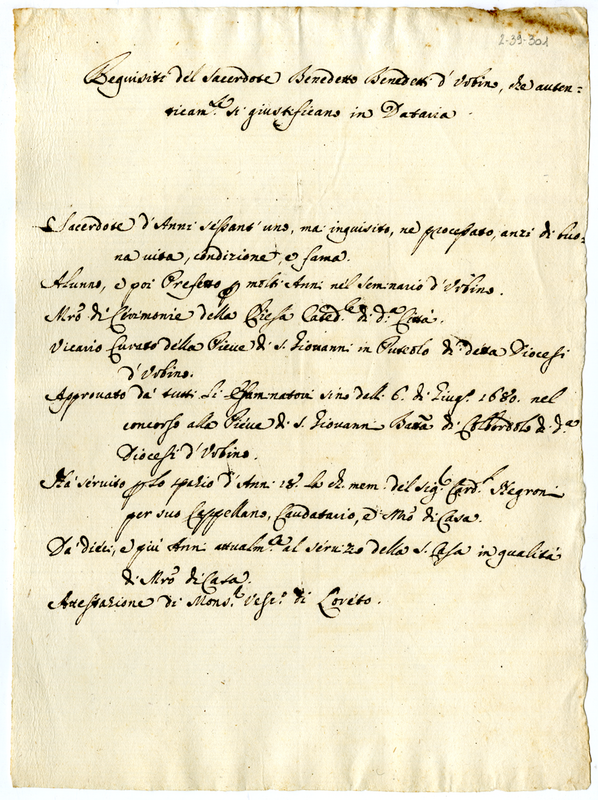 2-39-301
Requisiti del Sacerdote Benedetto Benedetti d'Urbino, che auten=
ticam.te si giustificano in Dataria
Sacerdote d'Anni sessant'uno, mai inquisito, ne processato, anzi di buo-
na vita, condizione, e fama.
Alunno, e poi Prefetto p molti Anni nel Seminario d'Urbino.
Mro di Cerimonie della Chiesa Cated.le di d.a Città.
Vicario Curato della Pieve di S. Giovanni in di detta Diocesi
d'Urbino.
Approvato da tutti li Esaminatori sino dell: 6. di Giug.o 1680. nel
concorso alla Pieve di S. Giovanni Batta di Colbordolo di d.a
Diocesi d'Urbino.
Ha servito p lo spazio d'Anni 18. la ch. mem. del Sig.r Card.l Negroni
per suo Cappellano, Caudatario, e Mro di Casa.
Da dieci, e più Anni attualm.te al servizio della S. Casa in qualità
di Mro di Casa.
Attestazione di Mons.r Vesc.o di Loreto.